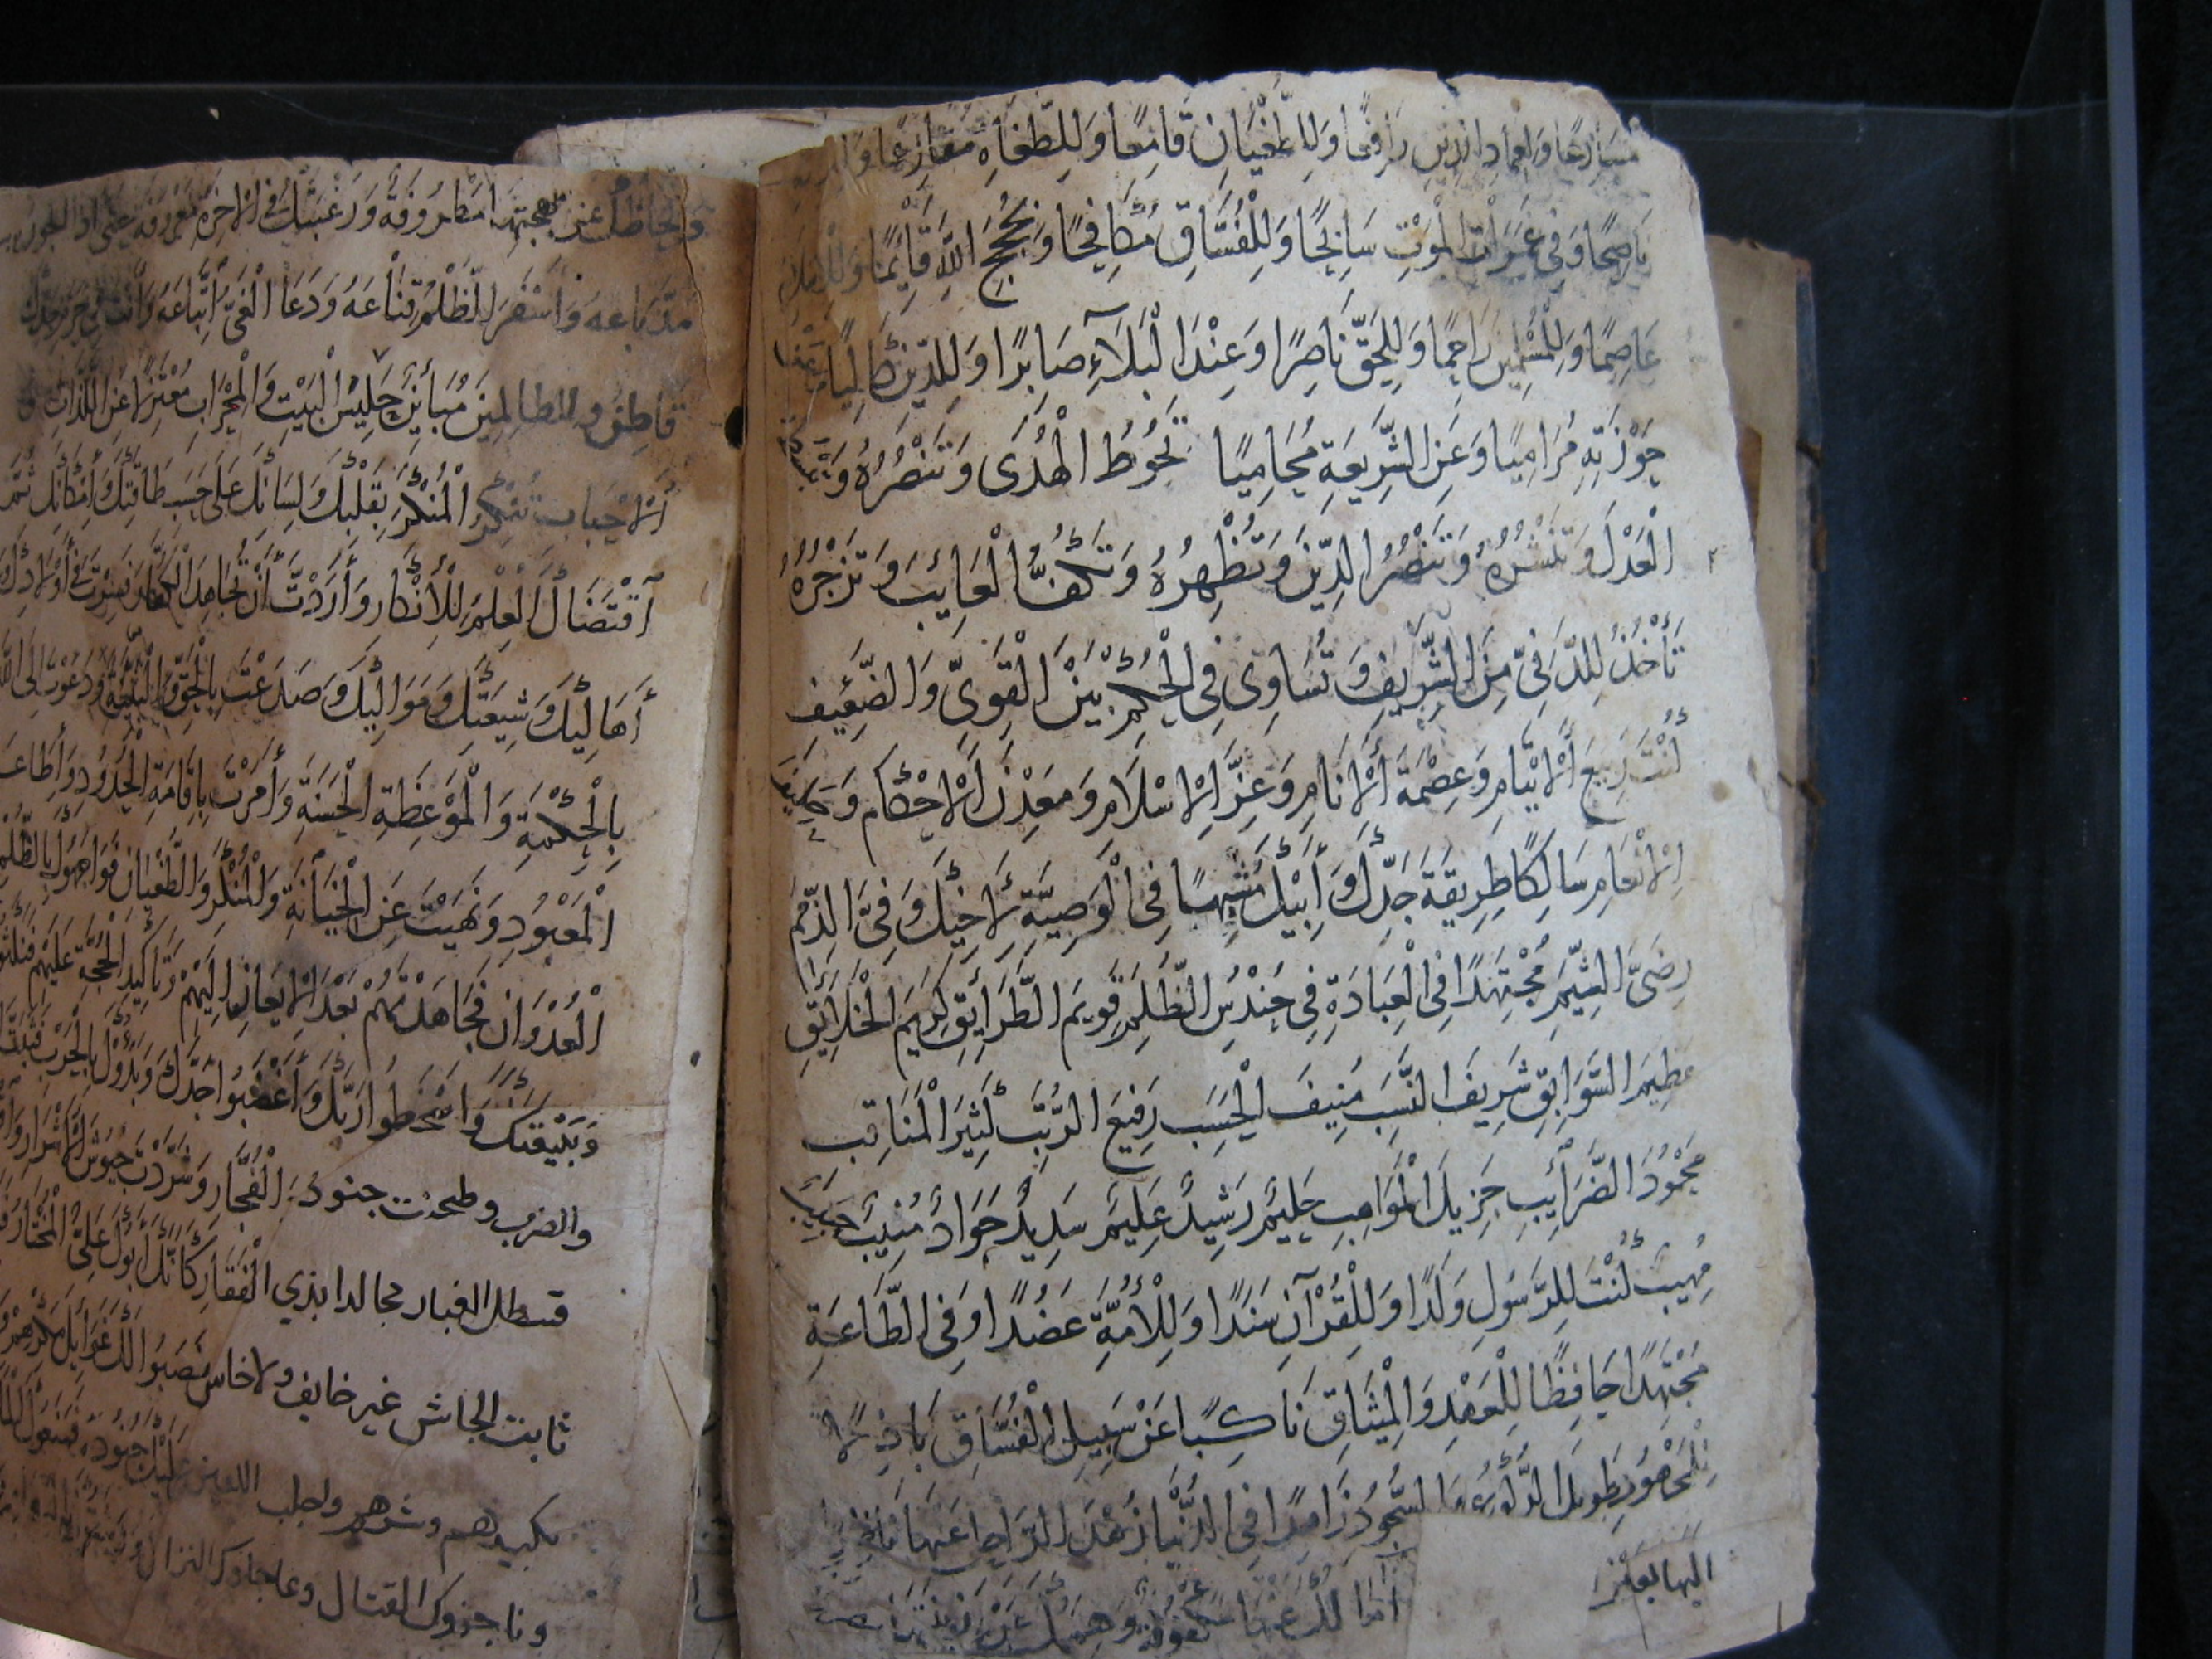 مسارعا ولعماد الدين رافعا وللطغيان قامعا وللطغاة مقارعا
ناصحا وفي غمرات الموت سابحا وللفساق مكافحا وبحجج الله قائما وللاسلام
عاصما وللمسلمين راحما وللحق ناصرا وعند البلاء صابرا وللدين كاليا وعن
حوزته مراميا وعن الشريعة محاميا تحوط الهدى وتنصره وتبسط
العدل وتنشره وتنصر الدين وتظهره وتكف العايث وتزجره
تأخذ للدني من الشريف وتساوي في الحكم بين القوي والضعيف
كنت ربيع الايتام وعصمة الانام وعز الاسلام ومعدن الاحكام وحليف
الانعام سالكا طريقة جدك وابيك مشبها في الوصية لاخيك وفي الذمم
رضي الشيم مجتهدا في العبادة في حندس الظلم قويم الطرائق كريم الخلائق
عظيم السوابق شريف النسب منيف الحسب رفيع الرتب كثير المناقب
محمود الضرائب جزيل المواهب حليم رشيد عليم سديد جواد منيب حبيب
مهيب كنت للرسول ولدا وللقرآن سندا وللأمة عضدا وفي الطاعة
مجتهدا حافظا للعهد والميثاق ناكبا عن سبيل الفساق باذلا
للمجهود طويل الركوع والسجود زاهدا في الدنيا زهد الراحل عنها ناظرا
اليها بعين
آمالك عنها مكفوفة وهمتك عن زينتها مصروفة
والحاظك عن بهجتها مطروفة ورغبتك في الاخرة معروفة حتى اذا الجور
مد باعه واسفر الظلم قناعه ودعا الغي أتباعه وانت في حرم جدك
قاطن وللظالمين مباين جليس البيت والمحراب معتزلا عن اللذات و
الاحباب تنكر المنكر بقلبك ولسانك على حسب طاقتك وامكانك ثم
اقتضاك العلم للأنكار وأردت أن تجاهد الكفار فسرت في أولادك و
أهاليك وشيعتك ومواليك وصدعت بالحق والبينة ودعوت الى الله
بالحكمة والموعظة الحسنة وأمرت بإقامة الحدود وأطاعة
المعبود ونهيت عن الخيانة والمنكر والطغيان فواجهوك بالظلم
العدوان فجاهدتهم بعد الايعاز اليهم وتأكيد الحجة عليهم فنكثوا
وبيعتك واسخطوا ربك وأغضبوا جدك وبدؤك بالحرب فثبت
والضرب وطحنت جنود الفجار وشردت جيوش الاشرار
قسطل الغبار مجالدا بذي الفقار كأنك أبوك علي المختار
ثابت الجاش غير خايف ولا خاس نصبوا لك غوايل مكرهم
بكيدهم وشرهم واجلب اللعين عليك جنوده فمنعوك الماء
وناجزوك القتال وعاجلوك النزال